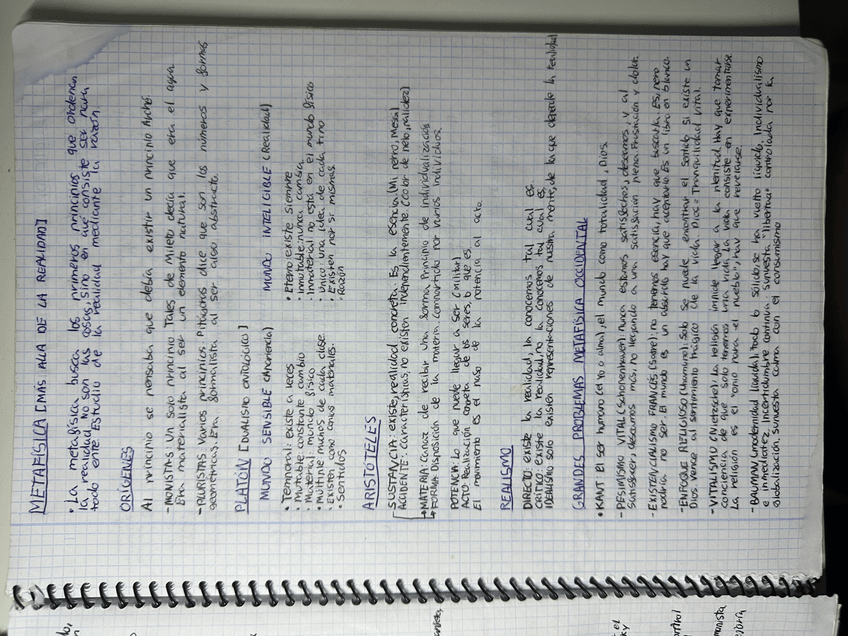 METAFÍSICA [MÁS ALLÁ DE LA REALIDAD]
• La metafísica busca los primeros principios que ordenan
la realidad. No son las cosas, sino en que consiste ser para
todo ente. Estudio de la realidad mediante la razón.
ORÍGENES
Al principio se pensaba que debía existir un principio Arché.
- MONISTAS: Un solo principio. Tales de Mileto decía que era el agua.
Era materialista al ser un elemento natural.
- PLURISTAS: Varios principios. Pitágoras dice que son los números y formas
geométricas. Era formalista al ser algo abstracto.
PLATÓN [DUALISMO ONTOLÓGICO]
MUNDO SENSIBLE (Apariencia)
• Temporal: existe a veces
• Mutable: constante cambio
• Material: mundo físico
• Múltiple: muchos de cada clase
• Existen como cosas materiales.
• Sentidos
MUNDO INTELIGIBLE (Realidad)
• Eterno: existe siempre
• Inmutable: nunca cambia
• Inmaterial: no está en el mundo físico
• Único: una idea de cada tipo
• Existen por sí mismas.
• Razón
ARISTÓTELES
SUSTANCIA: existe, realidad concreta. Es la esencia. (Mi perro, mesa)
ACCIDENTE: características, no existen independientemente. (Color de pelo, palidez)
MATERIA: Capaz de recibir una forma. Principio de individualización
FORMA: Disposición de la materia, compartido por varios individuos.
POTENCIA: Lo que puede llegar a ser (militar)
ACTO: Realización concreta de los seres, lo que es
El movimiento es el paso de la potencia al acto.
REALISMO
DIRECTO: existe la realidad, la conocemos tal cual es
CRÍTICO: existe la realidad, no la conocemos tal cual es.
IDEALISMO: solo existen representaciones de nuestra mente, de la que depende la realidad
GRANDES PROBLEMAS METAFÍSICA OCCIDENTAL
• KANT: El ser humano (el yo o alma), el mundo como totalidad, Dios.
- PESIMISMO VITAL (Schopenhauer): nunca estamos satisfechos, deseamos y al
satisfacer, deseamos más, no llegando a una satisfacción plena. Frustración y dolor.
- EXISTENCIALISMO FRANCÉS (Sartre): no tenemos esencia, hay que buscarla. Es, pero
podría no ser. El mundo es un absurdo, hay que aceptarlo. Es un libro en blanco.
- ENFOQUE RELIGIOSO (Unamuno): Solo se puede encontrar el sentido si existe un
Dios. Vence al sentimiento trágico de la vida. Dios = Tranquilidad vital.
- VITALISMO (Nietzsche): La religión impide llegar a la plenitud. Hay que tomar
conciencia de que solo tenemos una vida. La vida consiste en experimentarse
La religión es el "opio para el pueblo", hay que revelarse.
- BAUMAN (modernidad líquida): todo lo sólido se ha vuelto líquido. Individualismo
e inmediatez. Incertidumbre continua. Supuesta libertad controlada por la
globalización. Supuesta calma con el consumismo